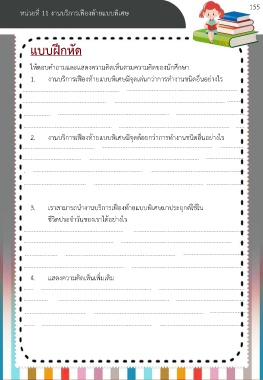 หน่วยที่ 11 งานบริการเฟืองท้ายแบบพิเศษ
155
แบบฝึกหัด
ให้ตอบคำถามและแสดงความคิดเห็นตามความคิดของนักศึกษา
1. งานบริการเฟืองท้ายแบบพิเศษมีจุดเด่นกว่าการทำงานชนิดอื่นอย่างไร
2. งานบริการเฟืองท้ายแบบพิเศษมีจุดด้อยกว่าการทำงานชนิดอื่นอย่างไร
3. เราสามารถนำงานบริการเฟืองท้ายแบบพิเศษมาประยุกต์ใช้ใน
ชีวิตประจำวันของเราได้อย่างไร
4. แสดงความคิดเห็นเพิ่มเติม